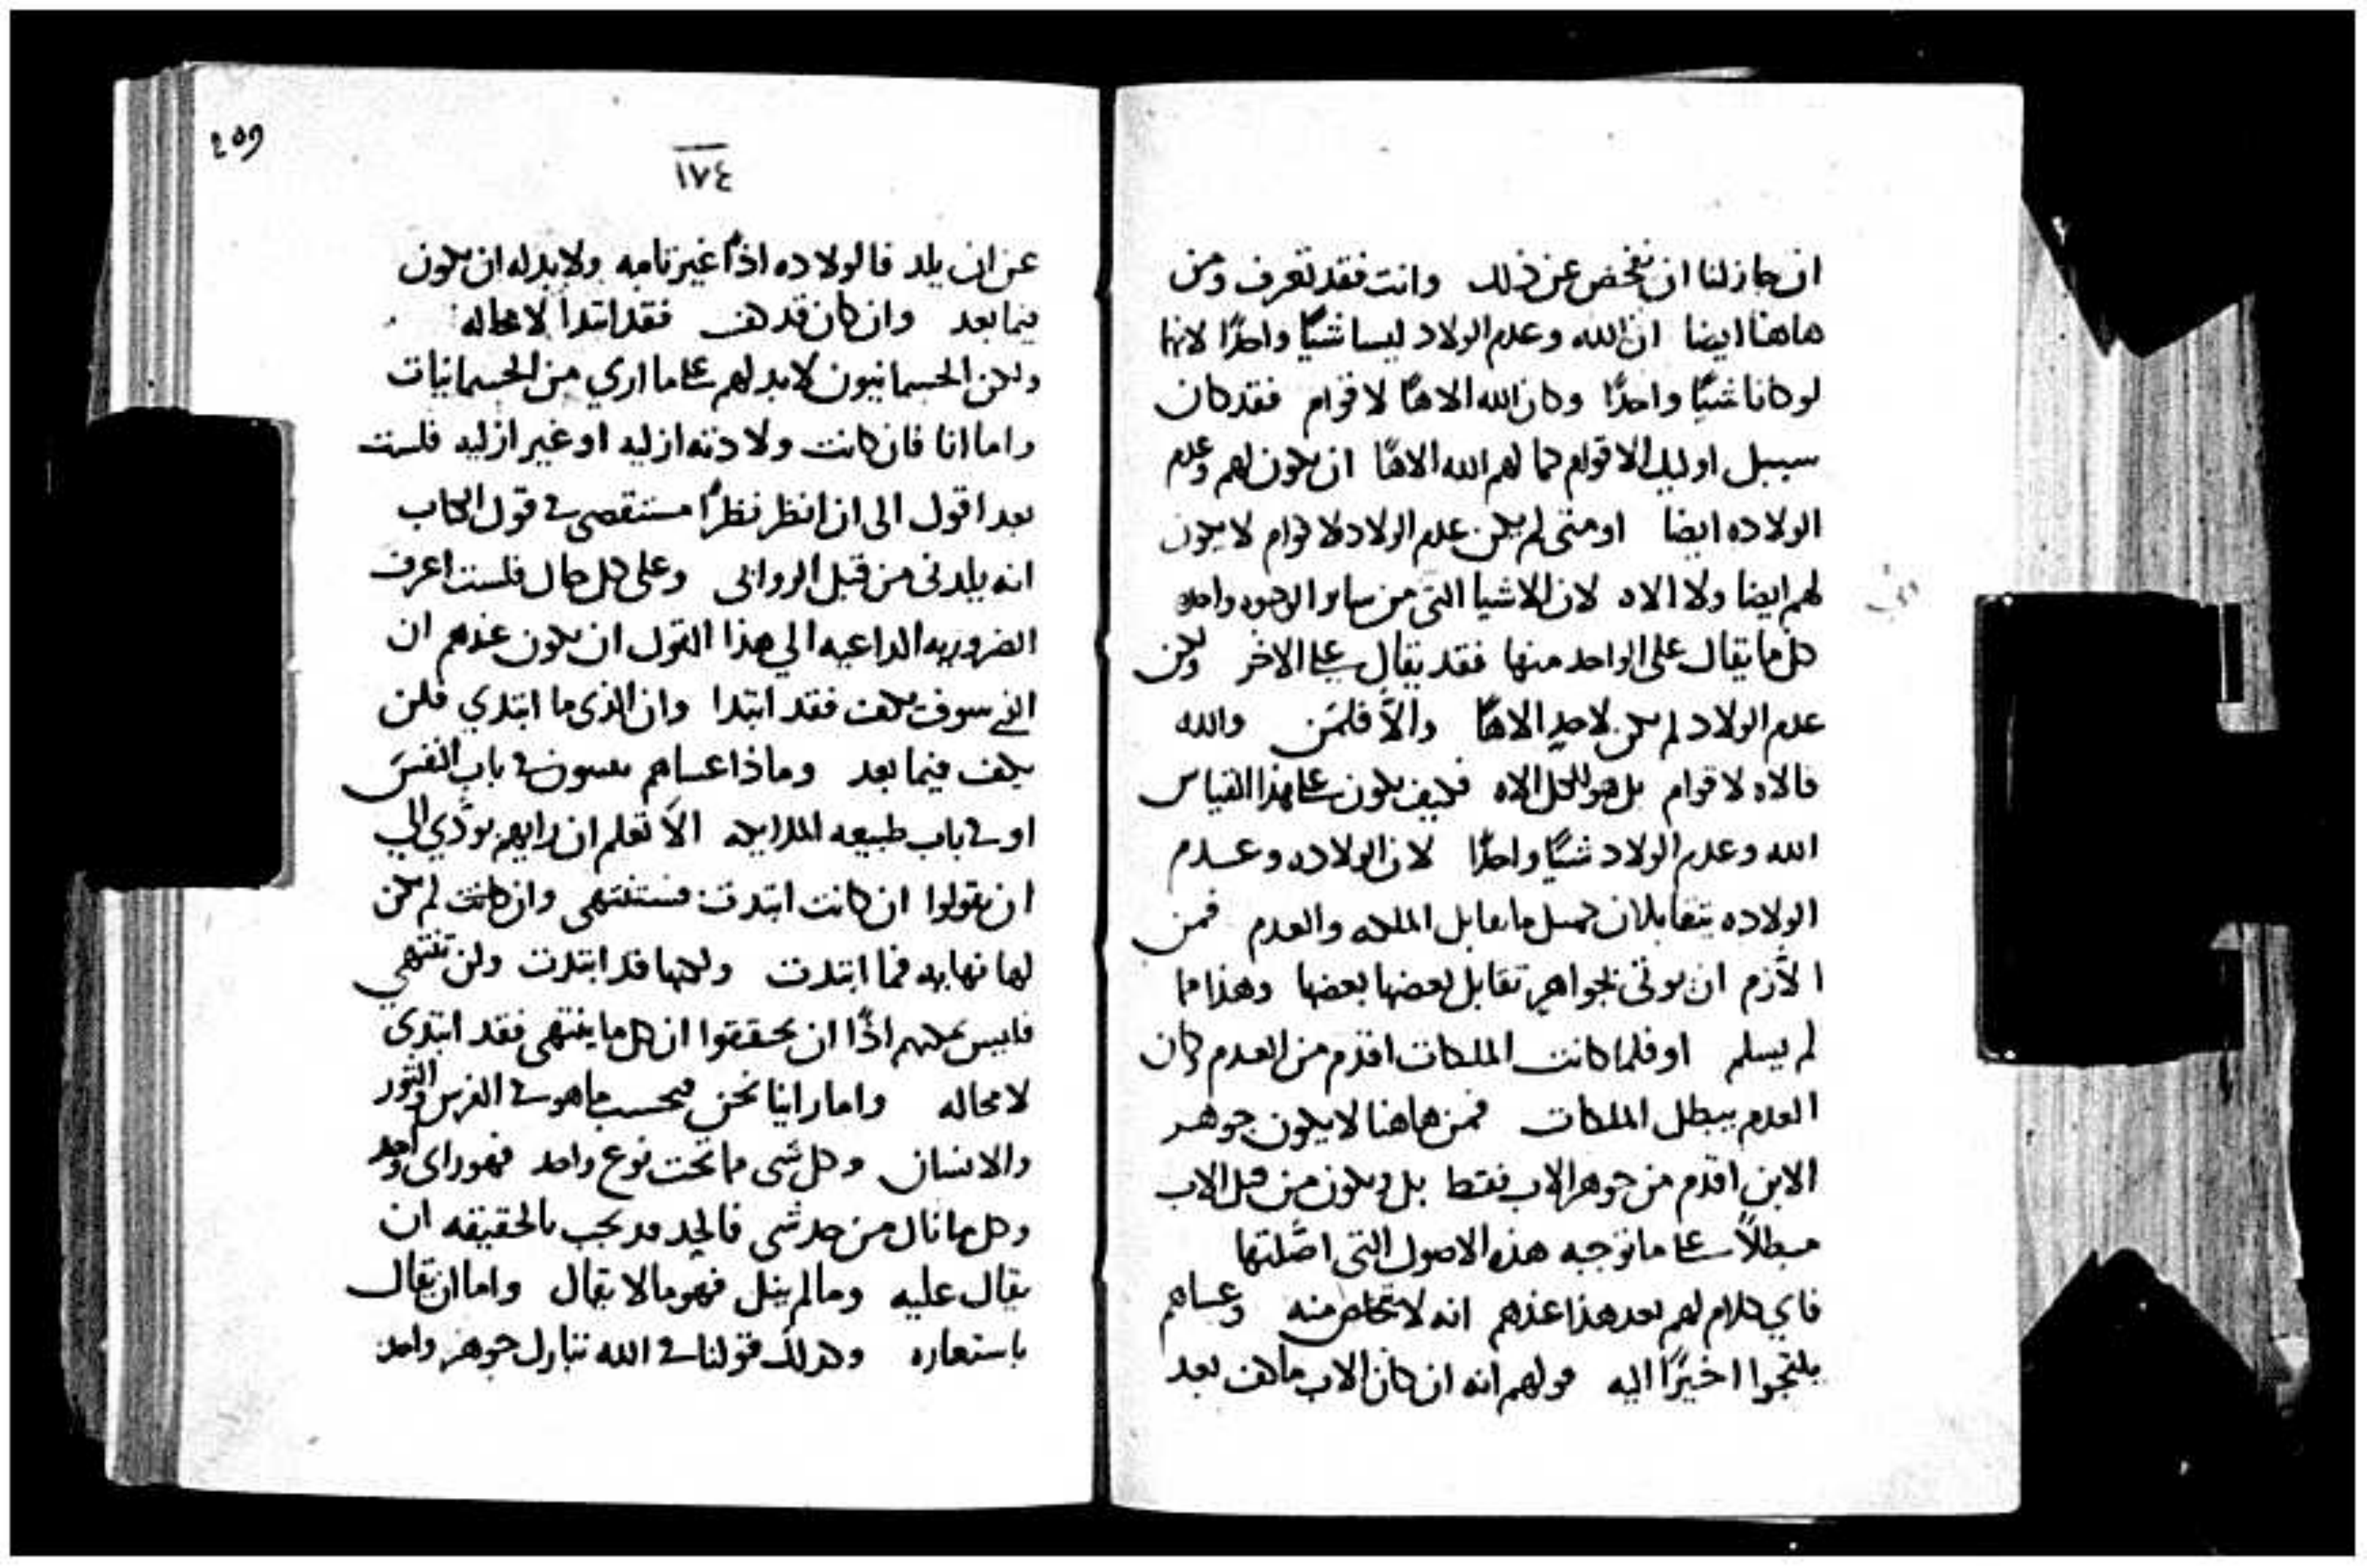 ان جاز لنا ان نفحص عن ذلك وانت فقد تعرف ومن
هاهنا ايضا ان الله وعدم الولاد ليسا شيًا واحدًا لانهما
لو كانا شيًا واحدًا وكان الله الاهًا لاقوام فقد كان
سبيل اوليك الاقوام كما لهم الله الاهًا ان يكون لهم وعدم
الولاده ايضا او متى لم يكن عدم الولاد لاقوام لا يكون
لهم ايضا ولا الاه لان الاشيا التى من ساير الوجوه واحده
كل ما يقال على الواحد منها فقد يقال على الاخر ولكن
عدم الولاد لم يكن لاحدٍ الاهًا والاّ فلمن والله
فالاه لاقوام بل هو للكل الاه فكيف يكون على هذا القياس
الله وعدم الولاد شيًا واحدًا لان الولاده وعدم
الولاده يتقابلان كمثل ما يقابل الملكه والعدم فمن
الاّزم ان يوتى بجواهر تقابل بعضها بعضها وهذا مما
لم يسلم او فلما كانت الملكات اقدم من العدم وكان
العدم يبطل الملكات فمن هاهنا لا يكون جوهر
الابن اقدم من جوهر الاب فقط بل ويكون من قبل الاب
مبطلاً على ما توجبه هذه الاصول التى اصّلتها
فاي كلام لهم بعد هذا عندهم انه لا تخلص منه وعساهم
يلتجوا اخيرًا اليه قولهم انه ان كان الاب ما كف بعد
٢٥٩
١٧٤
عن ان يلد فالولاده اذًا غير تامه ولا بد له ان يكون
فيما بعد وان كان قد كف فقد ابتدا لا محاله
ولكن الجسمانيون لا بد لهم على ما اري من الجسمانيات
واما انا فان كانت ولادته ازليه او غير ازليه فلست
بعد اقول الى ان انظر نظرًا مستقصى في قول الكتاب
انه يلدنى من قبل الروابى وعلى كل حال فلست اعرف
الضروريه الداعيه الي هذا القول ان يكون عندهم ان
الذي سوف يكف فقد ابتدا وان الذى ما ابتدي فلن
يكف فيما بعد وماذا عساهم في باب النفس
او في باب طبيعه الملايكه الاَ تعلم ان رايهم يودّي الي
ان يقولوا ان كانت ابتدت فستنتهى وان كانت لم يكن
لها نهايه فما ابتدت ولكنها قد ابتدت ولن تنتهي
فليس يمكنهم اذًا ان يحققوا ان كل ما ينتهى فقد ابتدى
لا محاله واما راينا نحن فبحسب ما هو في الفرس والثور
والانسان وكل شى مما تحت نوع واحد فهو راى واحد
وكل ما نال من حد شى فالحد قد يجب بالحقيقه ان
يقال عليه وما لم ينل فهو مما لا يقال واما ان يقال
باستعاره وكذلك قولنا في الله تبارك جوهر واحد